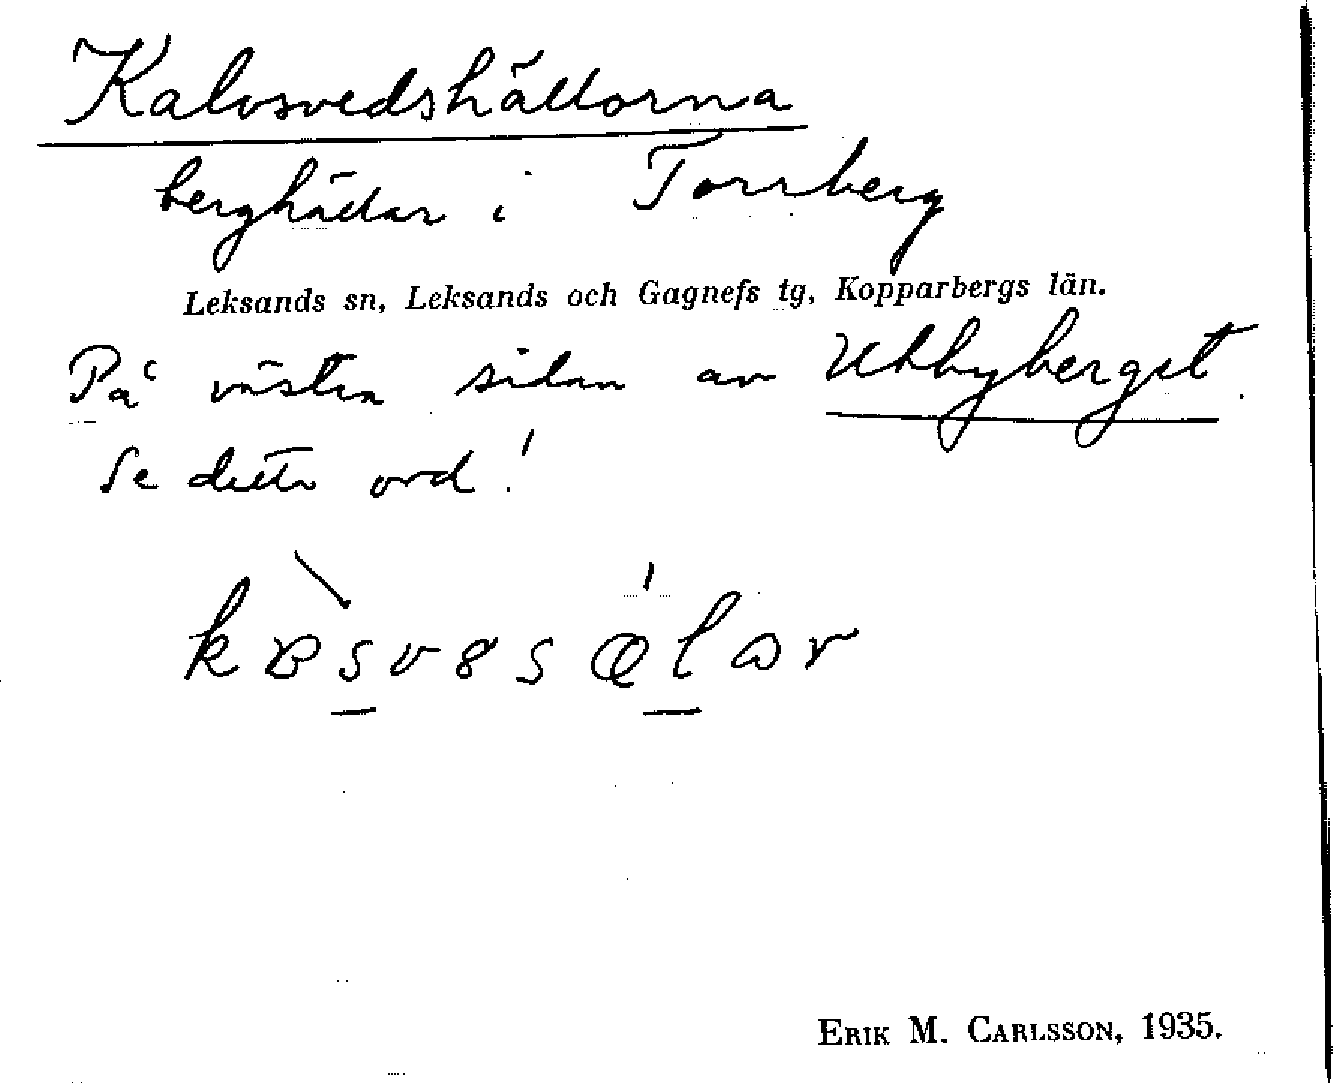 Kalvsvedshällorna
berghällar i Torrberg
Leksands sn, Leksands och Gagnefs tg, Kopparbergs län.
På västra sidan av Utbyberget.
Se detta ord!
ERIK M. CARLSSON, 1935.